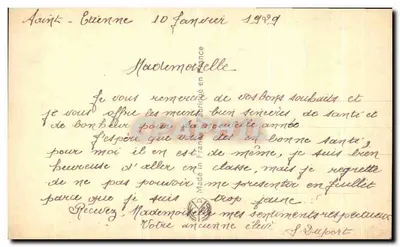 Saint-Etienne 10 Janvier 1929
Mademoiselle
Je vous remercie de vos bons souhaits et
je vous offre les miens bien sincères, de santé et
de bonheur pour la nouvelle année
J'espère que vous êtes en bonne santé,
pour moi il en est de même, je suis bien
heureuse d'aller en classe, mais je regrette
de ne pas pouvoir me présenter en juillet
parce que je suis trop jeune.
Recevez, Mademoiselle mes sentiments respectueux
Votre ancienne élève
S. Duport
Made in France